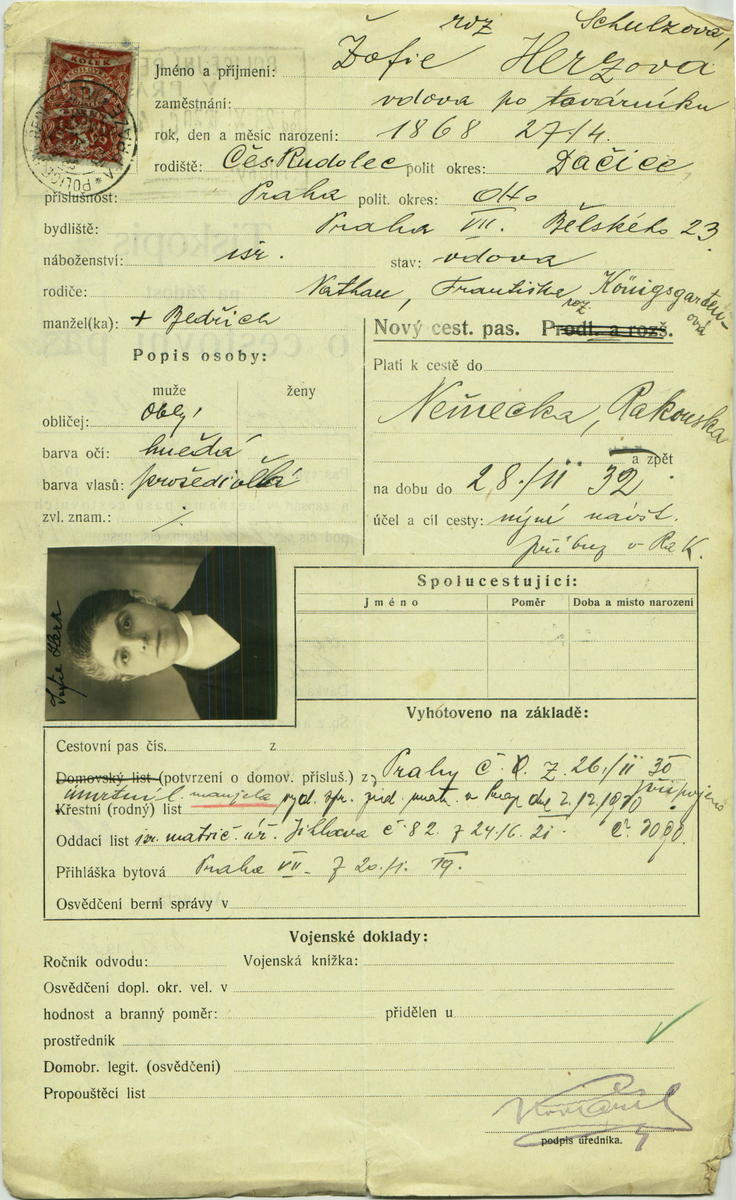 roz Schulzova,
Jméno a příjmení: Žofie Herzova
zaměstnání: vdova po továrníku
rok, den a měsíc narození: 1868 27./4.
rodiště: Čes. Rudolec polit okres: Dačice
příslušnost: Praha polit. okres:
bydliště: Praha VII. Bělského 23.
náboženství: isr. stav: vdova
rodiče: Nathan, Františka roz. Königsgarten-
ová
manžel(ka): + Bedřich
Nový cest. pas. Prodl. a rozš.
Popis osoby:
Platí k cestě do
muže ženy
Německa, Rakouska
obličej:
barva očí: hnědá
a zpět
barva vlasů: prošedivělá
na dobu do 28./II 32
zvl. znam.: ./.
účel a cíl cesty: návšt.
příbuz v Rak.
Spolucestující:
Jméno Poměr Doba a místo narození
Žofie Herz
Vyhotoveno na základě:
Cestovní pas čís. z
Domovský list (potvrzení o domov. přísluš.) z Prahy č. z 26./II 30
úmrtní l. manžela
Křestní (rodný) list
Oddací list isr. matrič. úř. Jihlava č 82. z 24/6. 21. č. 7090.
Přihláška bytová Praha VII. z 20./1. 19.
Osvědčení berní správy v
Vojenské doklady:
Ročník odvodu: Vojenská knížka:
Osvědčení dopl. okr. vel. v
hodnost a branný poměr: přidělen u
prostředník
Domobr. legit. (osvědčení)
Propouštěcí list
podpis úředníka.